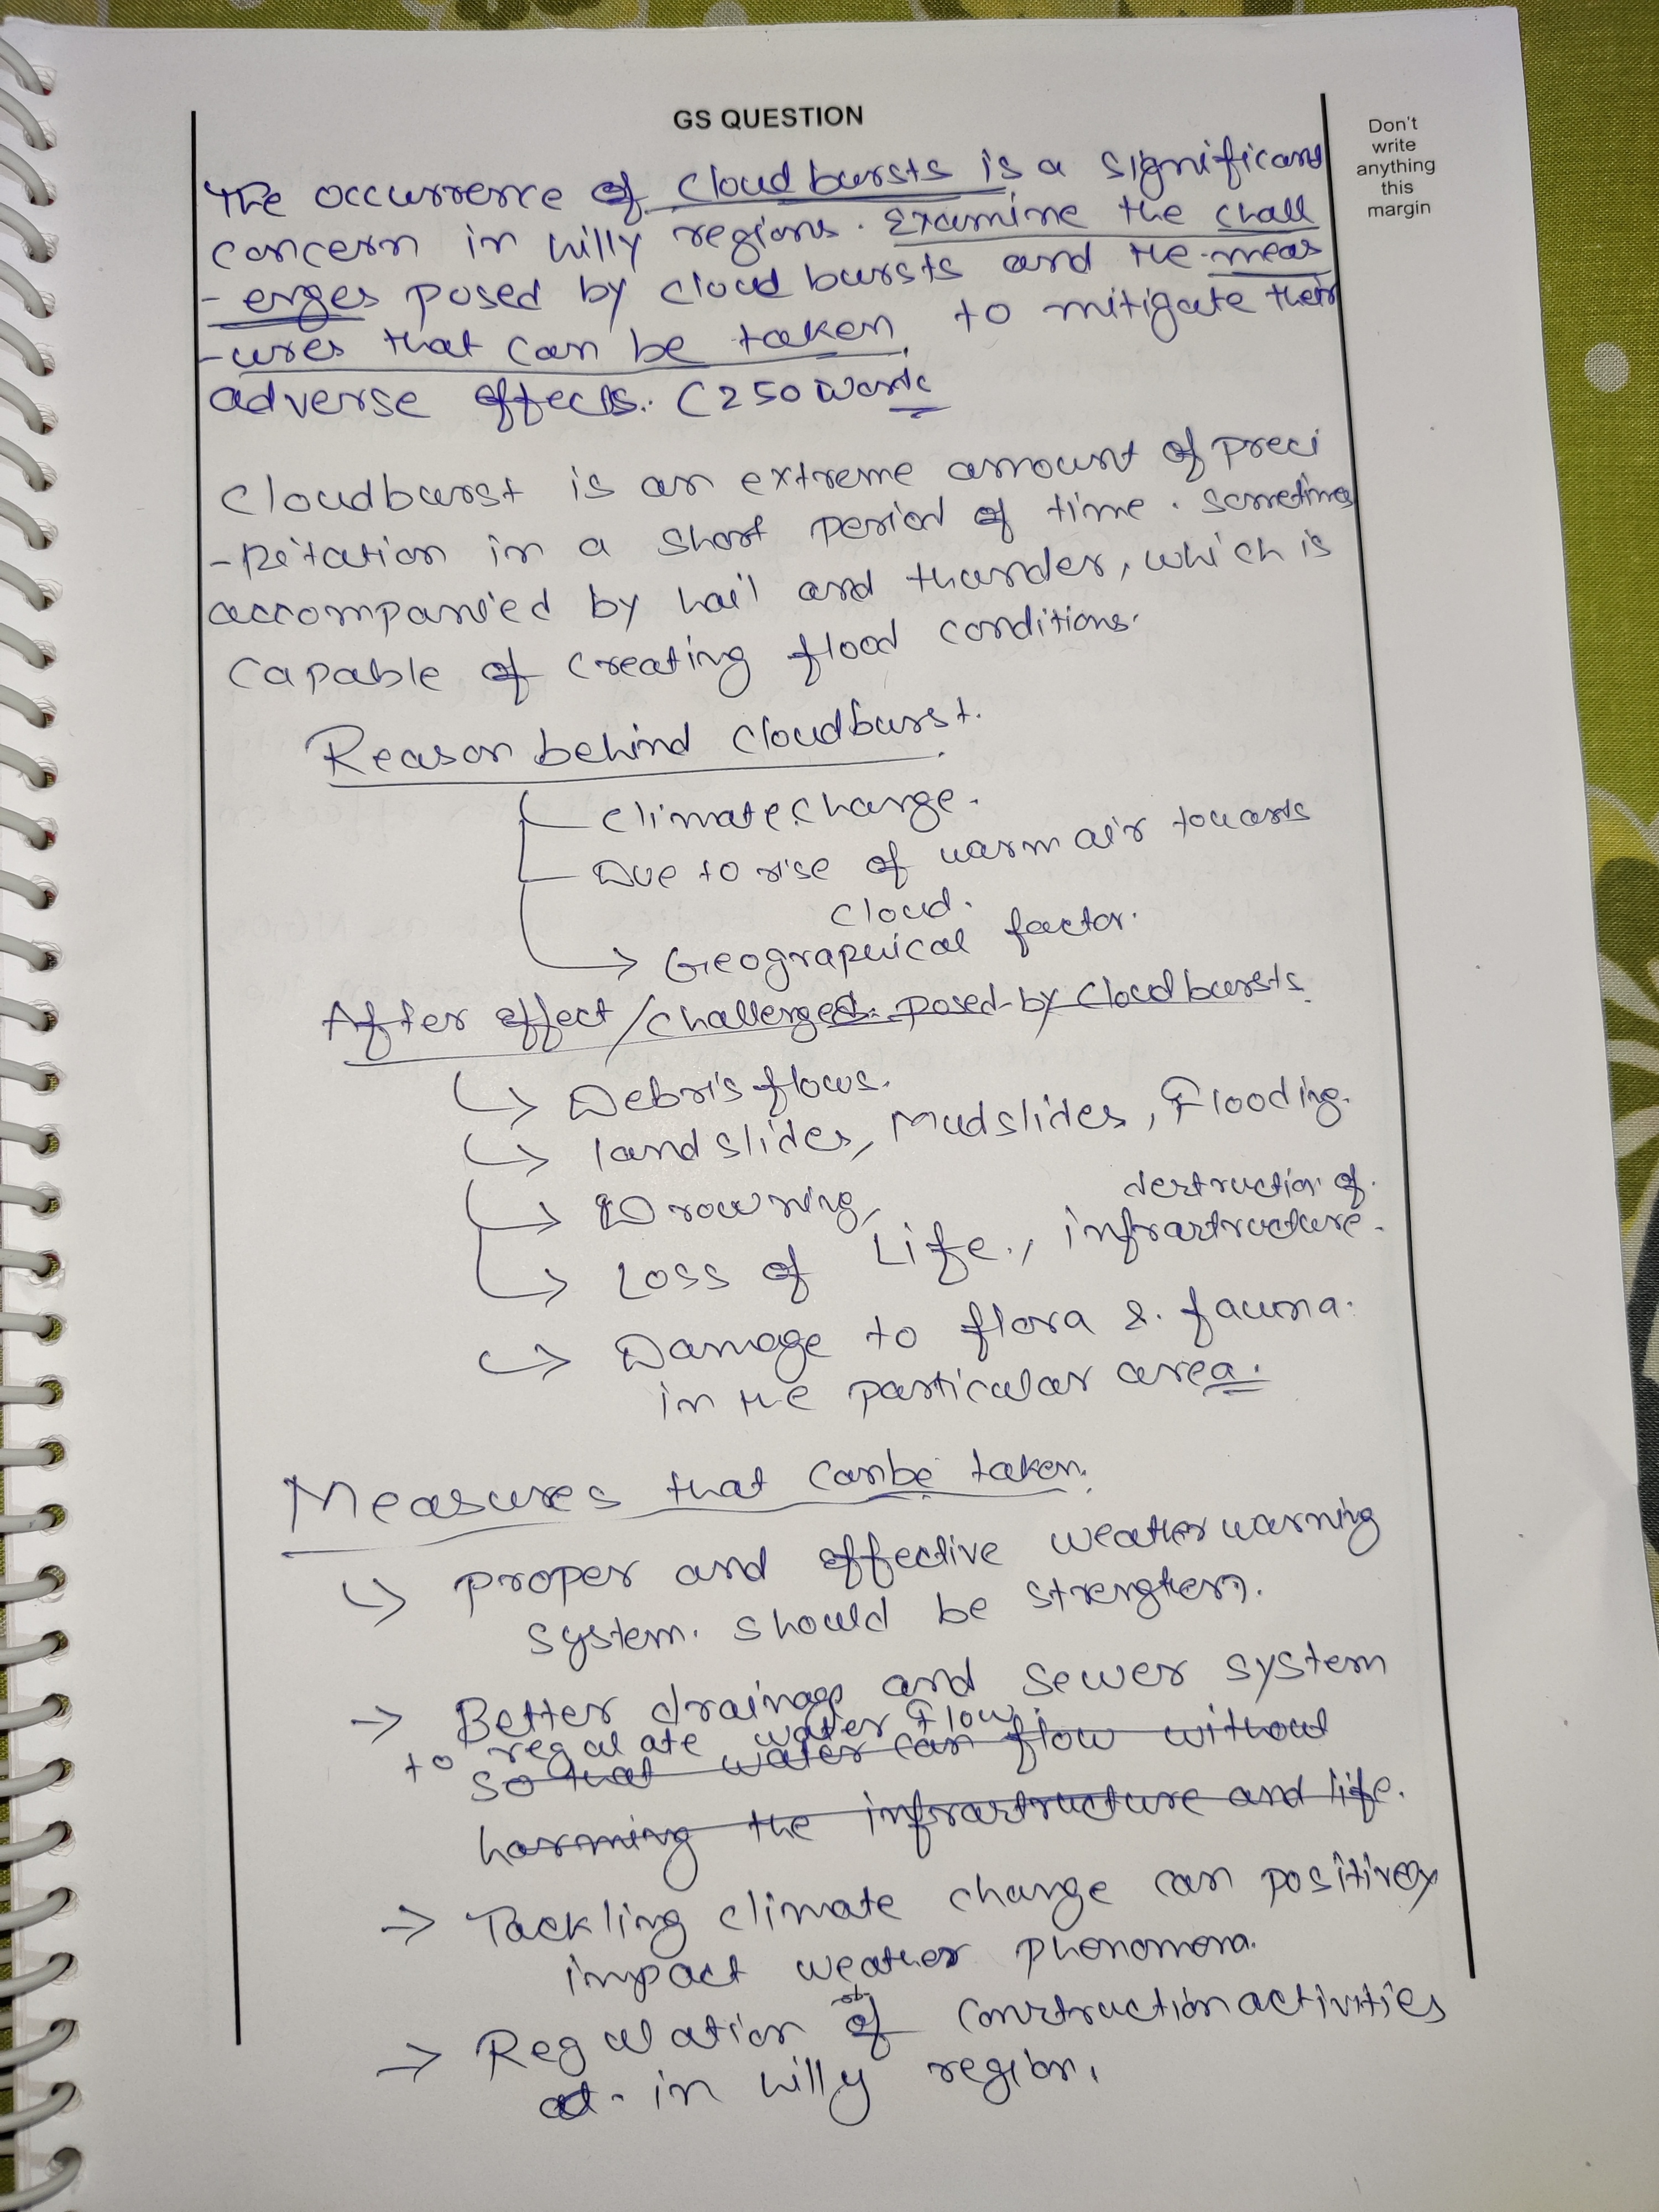 GS QUESTION
Don't
write
anything
this
margin
The occurrence of cloudbursts is a significant
concern in hilly regions. Examine the chall
-enges posed by cloudbursts and the meas
-ures that can be taken to mitigate their
adverse effects. (250 words
Cloudburst is an extreme amount of preci
-pitation in a short period of time. Sometimes
accompanied by hail and thunder, which is
capable of creating flood conditions.
Reason behind cloudburst.
Climate change.
Due to rise of warm air towards
cloud.
Geographical factor.
After effect/challenges posed by cloudbursts.
Debris flows.
landslides, Mudslides, Flooding.
Drowning,
destruction of
Loss of Life., infrastructure.
Damage to flora & fauna.
in the particular area.
Measures that can be taken.
Proper and effective weather warning
system. should be strengthen.
Better drainage and sewer system
to regulate water flow.
so that water can flow without
harming the infrastructure and life.
Tackling climate change can positively
impact weather phonomona.
Regulation of construction activities
in hilly region.